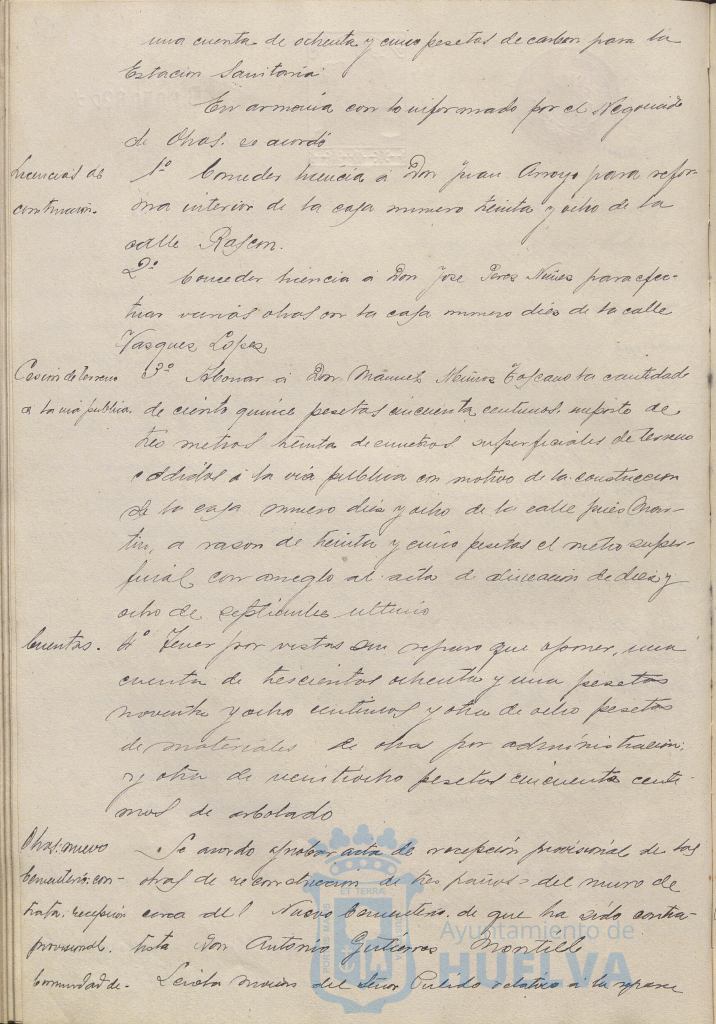 una cuenta de ochenta y cinco pesetas de carbon para la
Estacion Sanitaria.
En armonia con lo informado por el Negociado
de Obras. se acordó
Licencias de
construccion.
1º Conceder licencia á Don Juan Arroyo para refor-
ma interior de la casa numero treinta y ocho de la
calle Rascon.
2º Conceder licencia á Don Jose Perez Nuñez para efec-
tuar varias obras en la casa numero diez de la calle
Vasquez Lopez
Cesion de terreno
a la via publica.
3º Abonar á Don Manuel Muñoz Toscano la cantidad
de ciento quince pesetas cincuenta centimos. importe de
tres metros treinta decimetros superficiales de terreno
cedidos á la via publica con motivo de la construccion
de la casa numero dies y ocho de la calle Mar-
tin, a rason de treinta y cinco pesetas el metro super-
ficial con arreglo al acta de alineacion de dies y
ocho de septiembre ultimo
Cuentas.
4º Tener por vistas sin reparo que oponer, una
cuenta de trescientas ochenta y una pesetas
noventa y ocho centimos y otra de ocho pesetas
de materiales de obra por administracion;
y otra de veintiocho pesetas cincuenta centi-
mos de arbolado
Obras. nuevo
Cementerio. con-
trata. recepcion
provisional.
Se acordo aprobar acta de recepción provisional de las
obras de reconstruccion de tres paños del muro de
cerca del Nuevo Cementerio. de que ha sido contra-
tista Don Antonio Gutierres Montiel
Comunidad de-
Leida mocion del Señor Pulido relativa a la
PORTUS MARIS
ET TERRAE
Ayuntamiento de
HUELVA